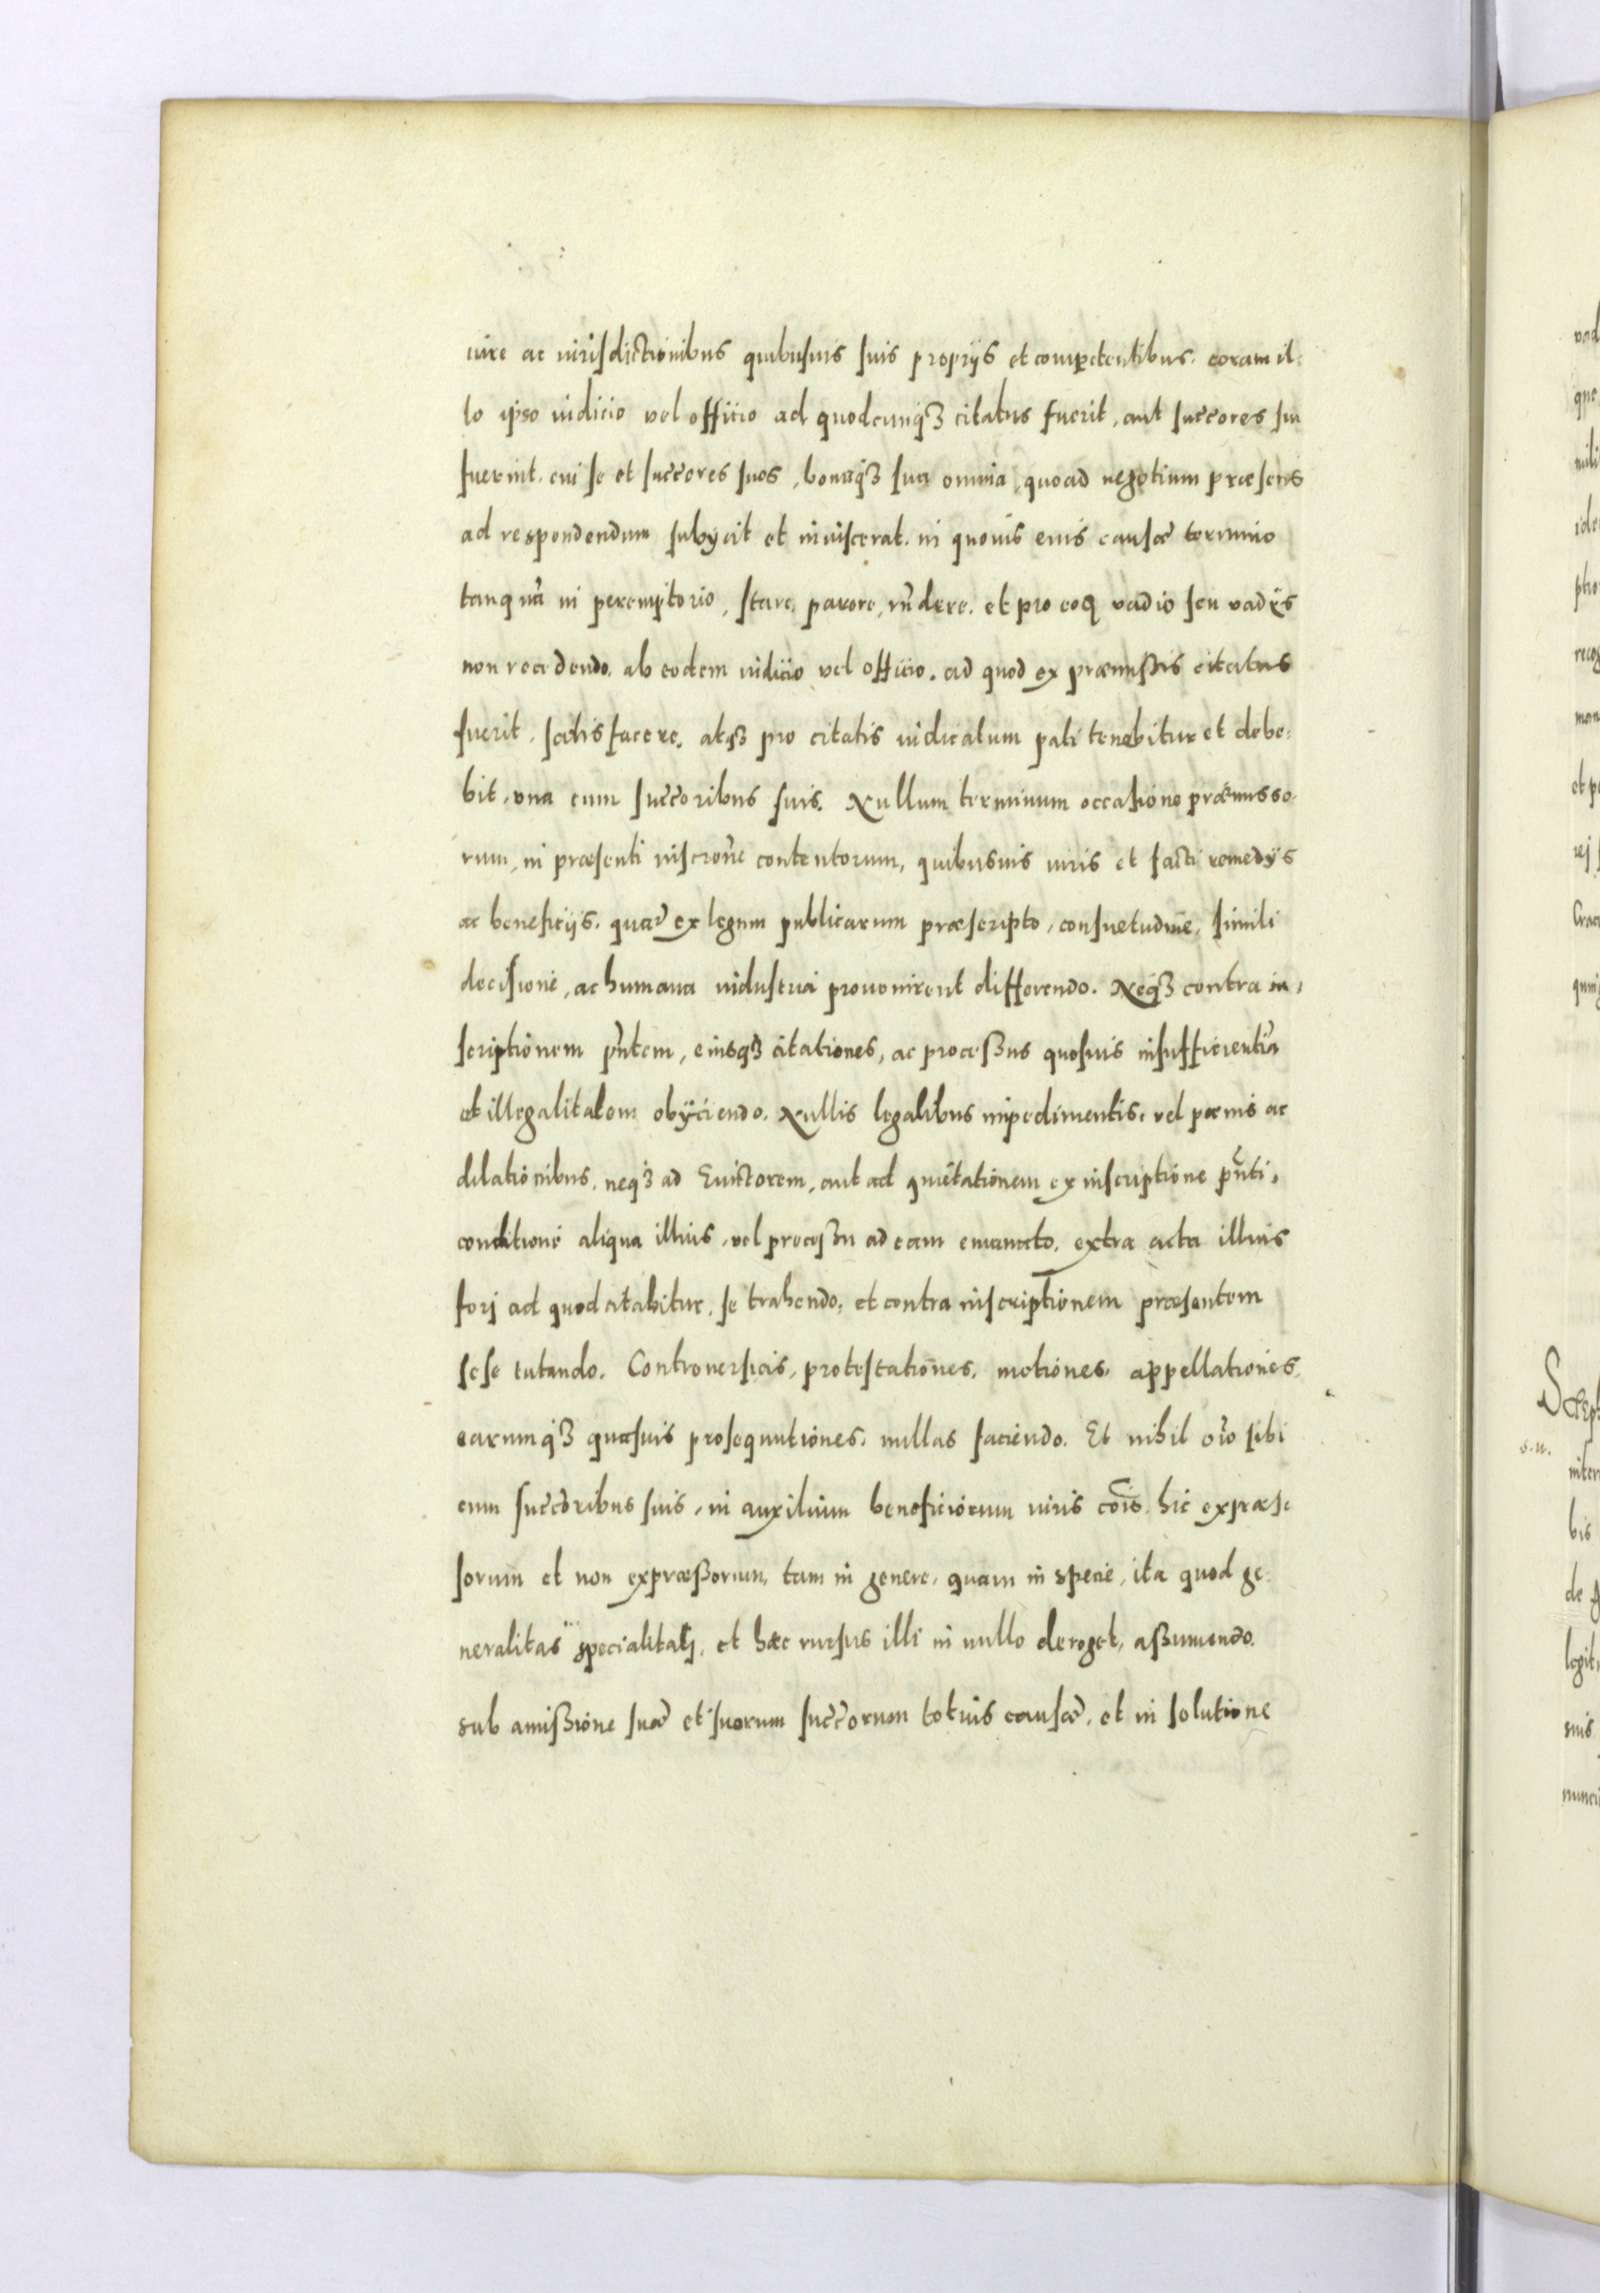 iure ac iurisdictionibus quibusuis suis proprijs et competentibus. coram il=
lo ipso iudicio vel officio ad quodcunq3 citatus fuerit, aut succ̄ores sui
fuerint. cui se et succ̄ores suos, bonaq3 sua omnia, quoad negotium præsens
ad respondendum subijcit et inuiscerat. in quouis eius causæ termino
tanquā in peremptorio, stare, parere, rn̄dere. et pro eoq vadio seu vadijs
non recedendo. ab eodem iudicio vel officio. ad quod ex præmißis citatus
fuerit, satisfacere. atq3 pro citatis iudicatum pati tenebitur et debe=
bit, vna cum succ̄oribus suis. Nullum terminum occasione præmisso-
rum, in præsenti inscrōne contentorum, quibusuis iuris et facti remedijs
ac beneficijs. quæ ex legum publicarum præscripto, consuetudine, simili
decisione, ac humana industria prouenirent differendo. Neq3 contra in=
scriptionem pn̄tem, eiusq3 citationes, ac proceßus quosuis insufficientiā
et illegalitatem obijciendo. Nullis legalibus impedimentis. vel pœnis ac
dilationibus. neq3 ad Euictorem, aut ad quietationem ex inscriptione pn̄ti,
conditione aliqua illius, vel proceßu ad eam emanato. extra acta illius
forj ad quod citabitur. se trahendo. et contra inscriptionem præsentem
sese tutando. Controuersias, protestationes. motiones. appellationes.
earumq3 quasuis prosequutiones. nullas faciendo. Et nihil oīo sibi
cum succ̄oribus suis, in auxilium beneficiorum iuris cōis. hic expræs=
sorum et non expræßorum, tam in genere, quam in specie, ita quod ge=
neralitas specialitatj, et hæc rursus illi in nullo deroget, aßumendo.
sub amißione suæ et suorum succ̄orum totius causæ, et in solutione